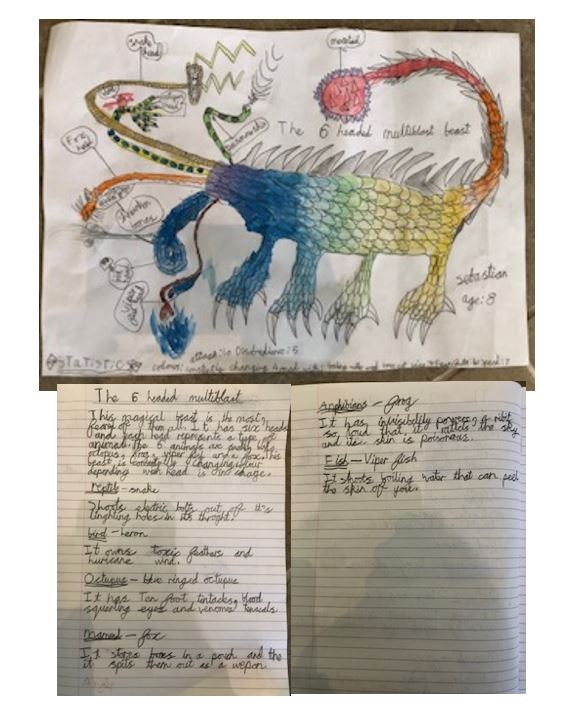 snake head
The 6 headed multiblast beast
Fox head
sebastian
age: 8
STATISTICS
attack: 10 Disobedience: 5
colour: constantly changing
speed: 7
The 6 headed multiblast
This magical beast is the most
feared of them all. It has six heads
and each head represents a type of
animal. The 6 animals are snake,
octopus, frog, viper fish and a fox. This
beast is constantly changing colour
depending wich head is in charge.
Reptile - snake
Shoots electric bolts out of it's
in its throght.
bird - heron
It owns toxic feathers and
huricane wind.
Octupus - blue ringed octopus
It has Ten foot tentacks, blood
squirting eyes and venomes tentacals.
Mammal - fox
It stores bones in a pouch and the
it spits them out as a wepon.
Amphibians - frog
It has invisibility powers, A ribit
so loud that it rattles the sky
and its skin is poisonous.
Fish - Viper fish
It shoots boiling water that can peel
the skin off you.